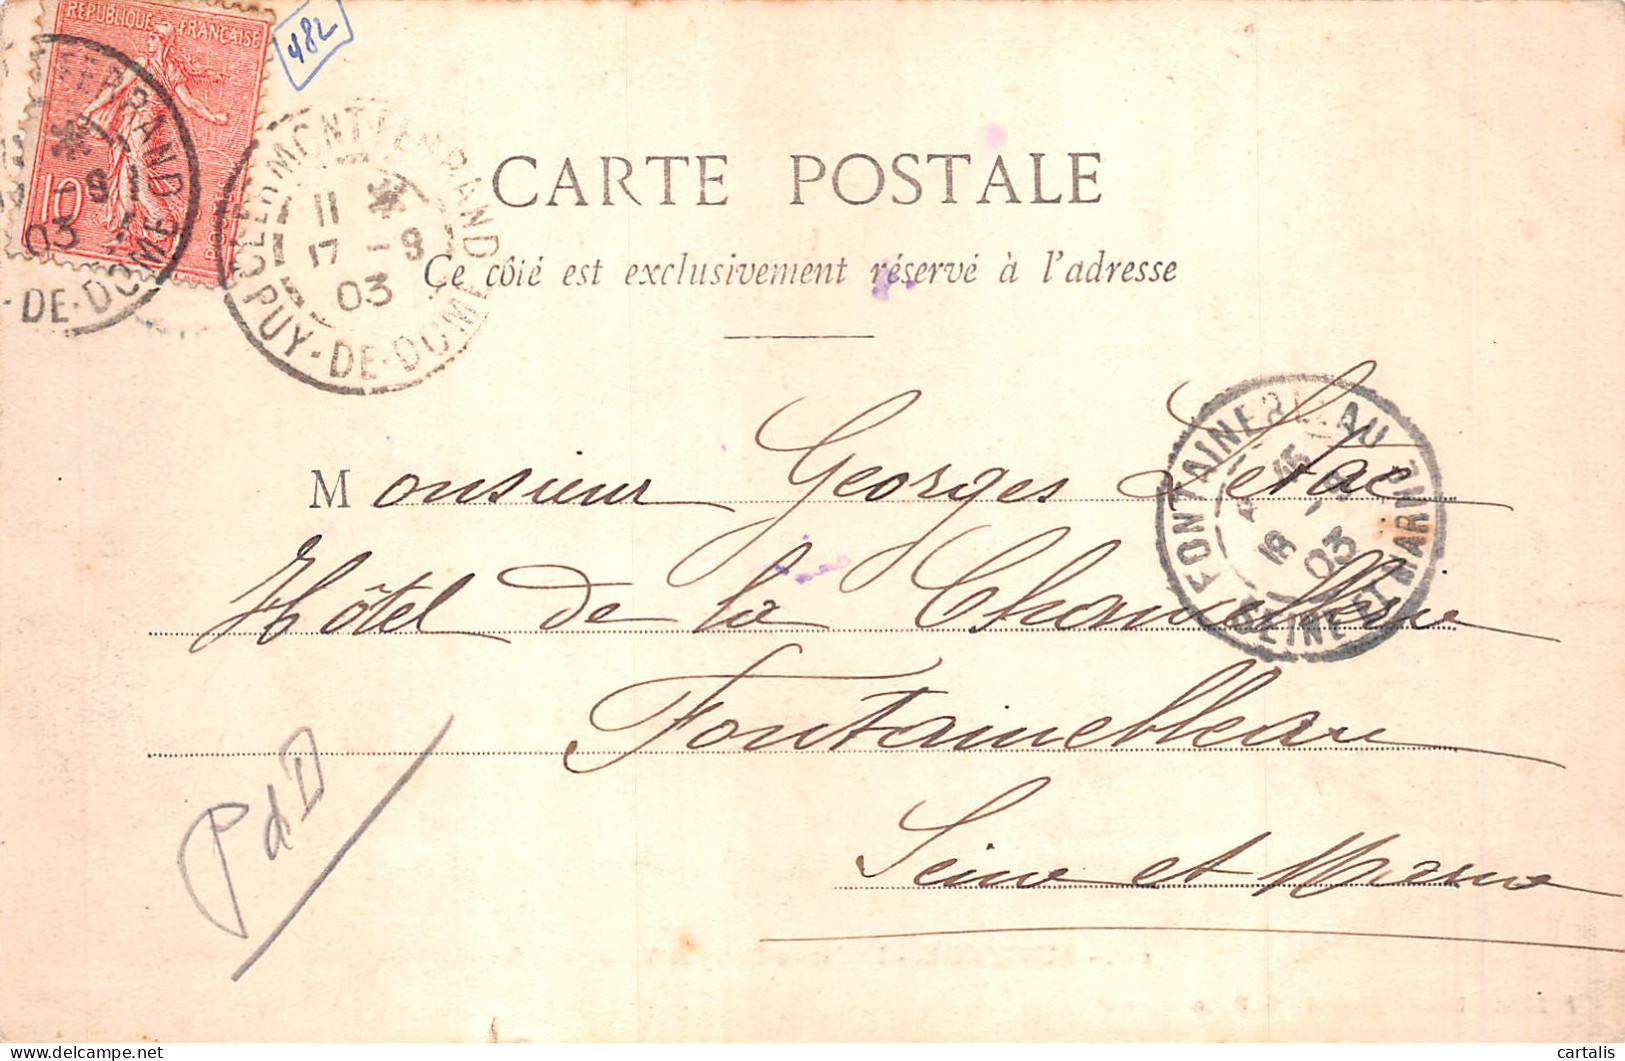 REPUBLIQUE FRANÇAISE
10
482
CLERMONT-FERRAND
11
17 -9
03
PUY-DE-DOME
CARTE POSTALE
Ce côté est exclusivement réservé à l'adresse
Monsieur Georges
Hôtel de la Chancellerie
Fontainebleau
Seine et Marne
FONTAINEBLEAU
18
03
SEINE ET MARNE
PdD
cartalis